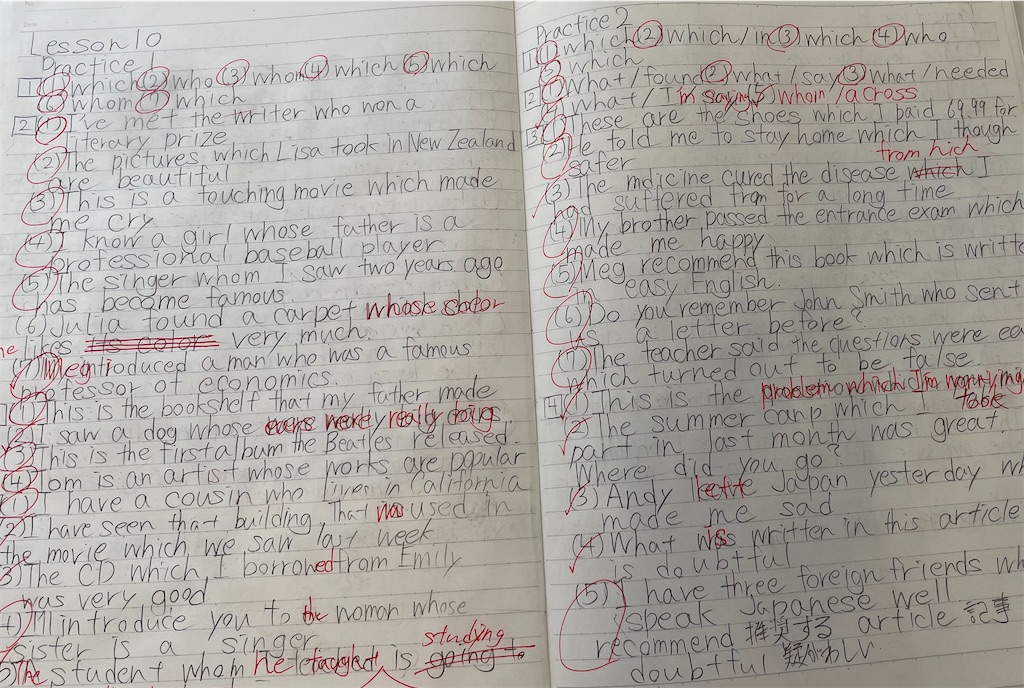 Lesson 10
Practice 1
1 ① which ② who ③ whom ④ which ⑤ which
⑥ whom ⑦ which
2 (1) I've met the writer who won a
literary prize
(2) The pictures which Lisa took in New Zealand
are beautiful
(3) This is a touching movie which made
me cry
(4) I know a girl whose father is a
professional baseball player
(5) The singer whom I saw two years ago
has become famous.
(6) Julia found a carpet whose color
likes its color very much.
troduced a man who was a famous
professor of economics.
(1) This is the bookshelf that my father made
I saw a dog whose ears were really
(3) This is the first album the Beatles released.
(4) Tom is an artist whose works are popular
I have a cousin who lives in California
2) I have seen that building, That was used in
the movie which we saw last week
3) The CD which I borrowed from Emily
was very good
4) I'll introduce you to the woman whose
sister is a singer.
studying
The student whom he is going to
Practice 2
1 ① which ② which/in ③ which ④ who
⑤ which
2 ① What/found ② what/say ③ What/needed
what/I'm saying ⑤ whom/across
3 (1) These are the shoes which I paid 69.99 for
(2) He told me to stay home which I though
safer
(3) The mdicine cured the disease which I
had suffered from for a long time
(4) My brother passed the entrance exam which
made me happy
(5) Meg recommend this book which is writte
easy English.
(6) Do you remember John Smith who sent
us a letter before?
(7) The teacher said the questions were ea
which turned out to be false
4 (1) This is the problem which I'm
The summer canp which I took
part in last month was great.
Where did you go?
(3) Andy Japan yesterday wh
made me sad
(4) What is written in this article
is doubtful
(5) I have three foreign friends wh
speak Japanese well
recommend 推奨する article 記事
doubtful 疑がわしい